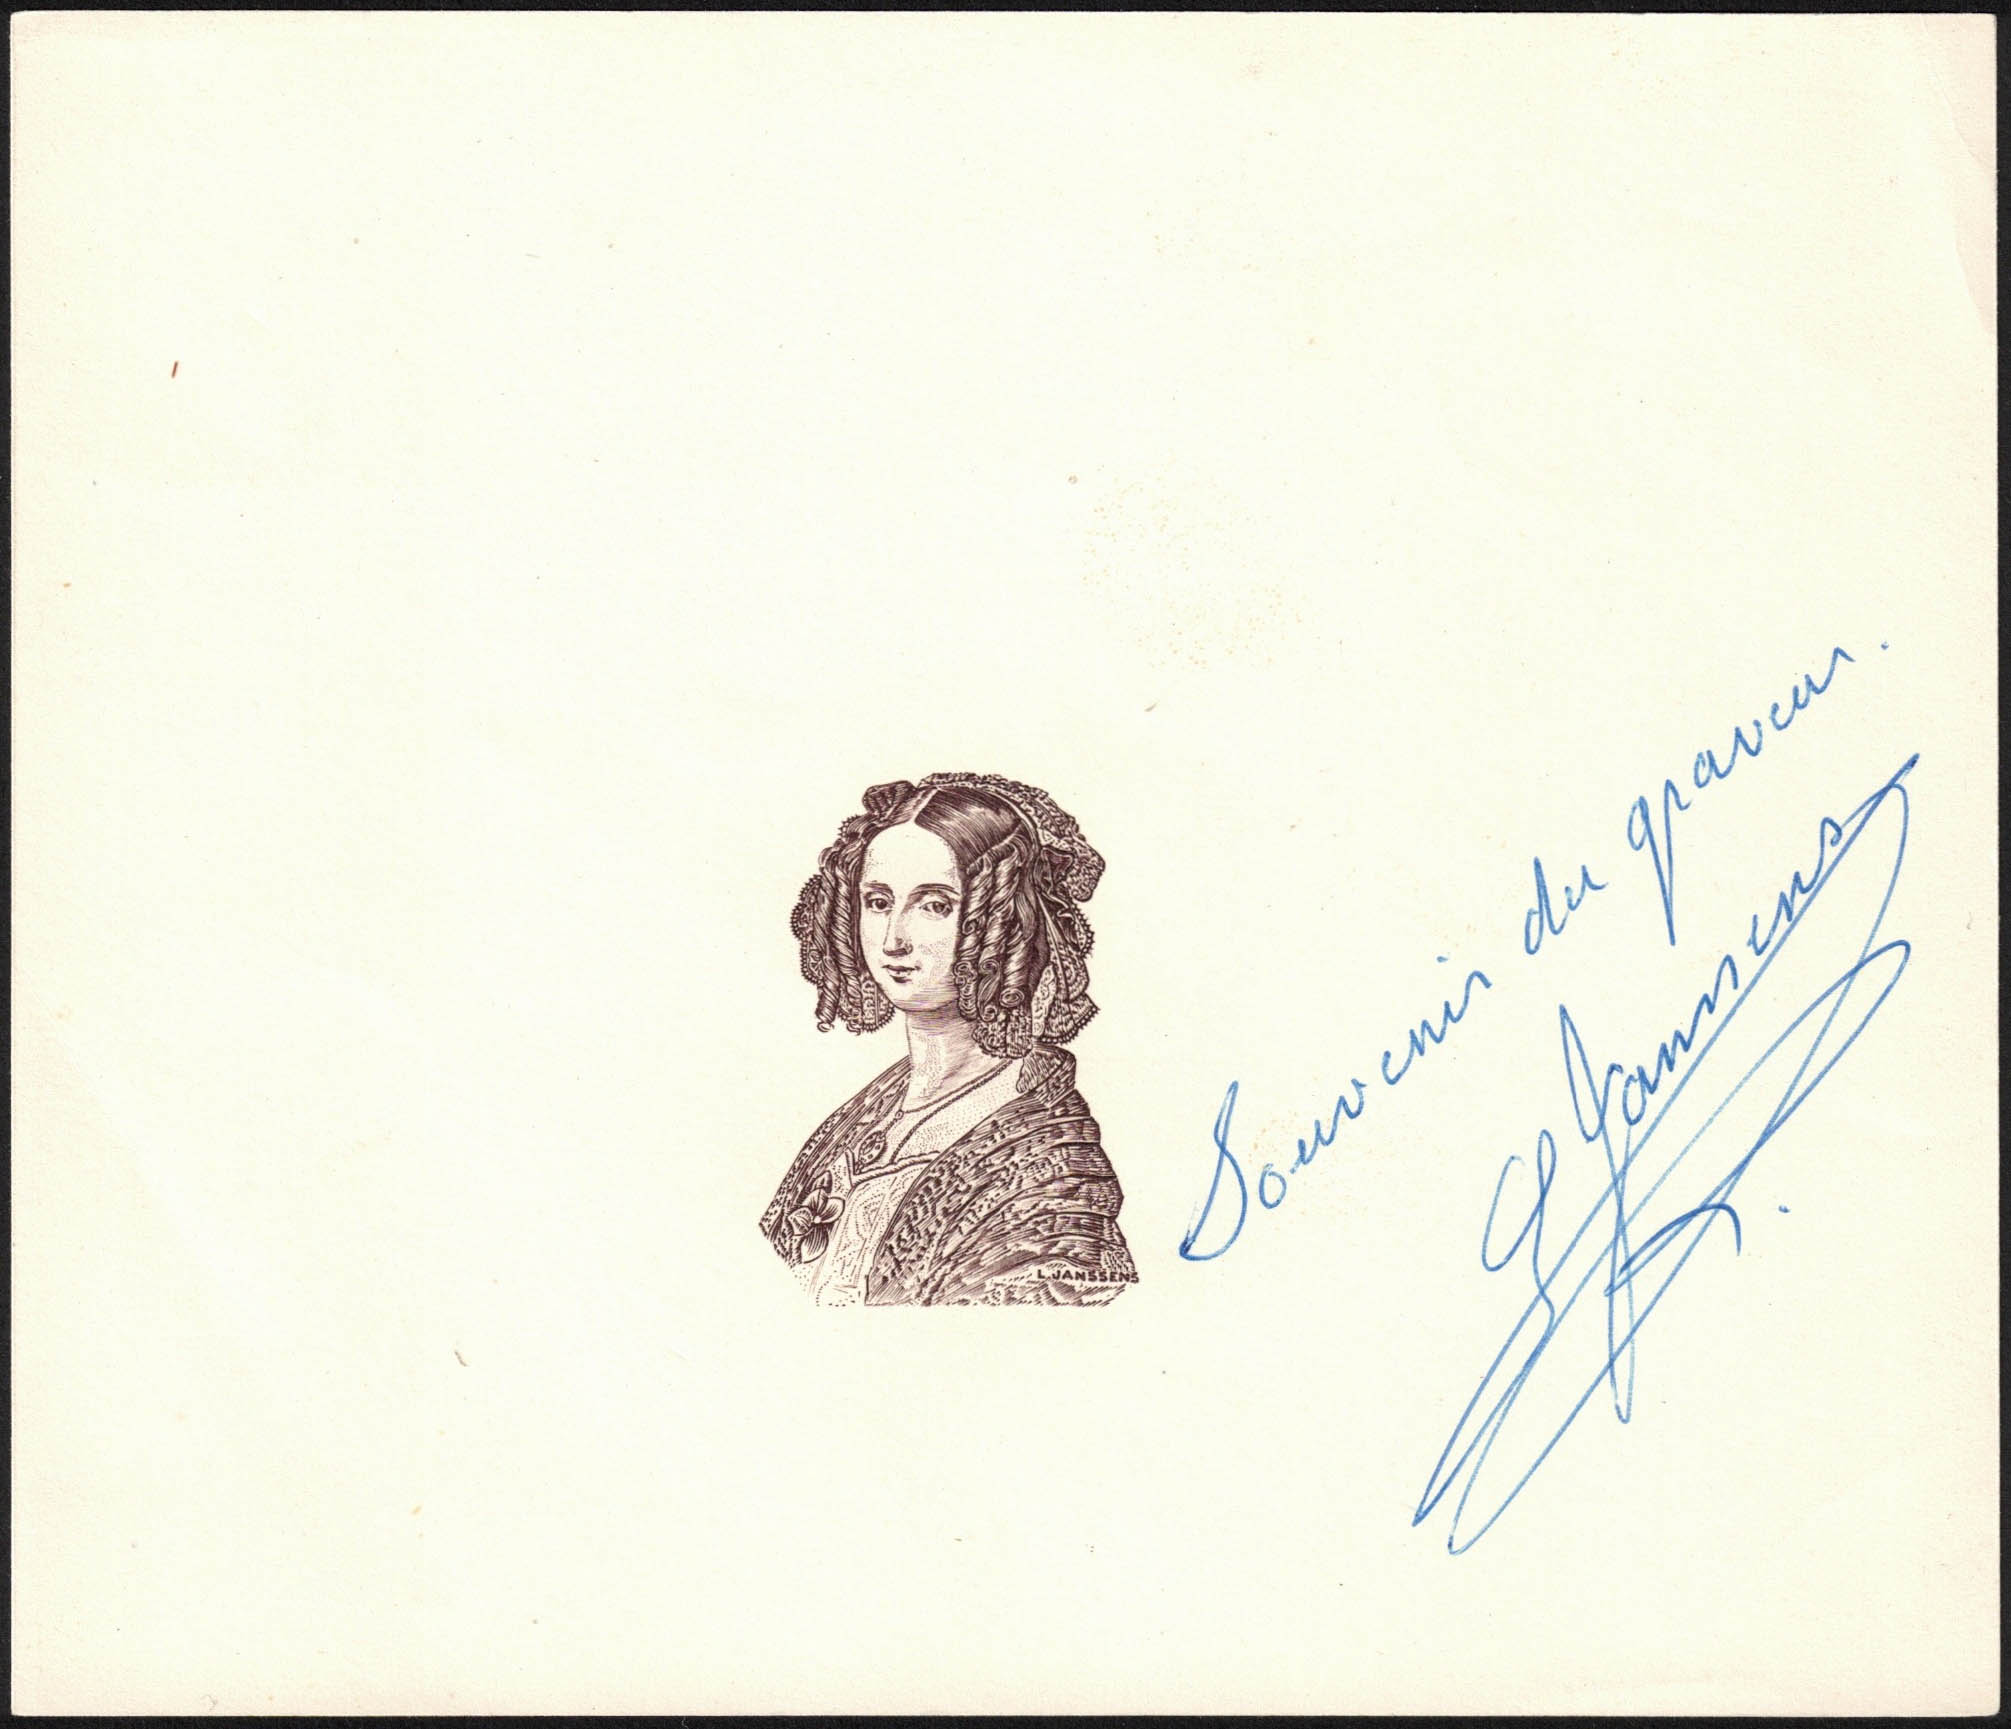 L. JANSSENS
Souvenir du graveur.
L Janssens